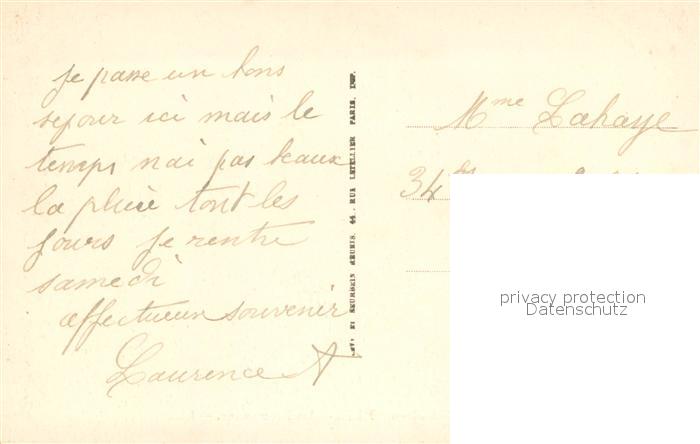 je passe un bons
sejour ici mais le
temps nai pas beaux
la pluie tout les
jours je rentre
samedi
affectueux souvenir
Laurence A
LEVY ET NEURDEIN REUNIS, 44, RUE LETELLIER PARIS, IMP.
Mme Lahaye
34
privacy protection
Datenschutz